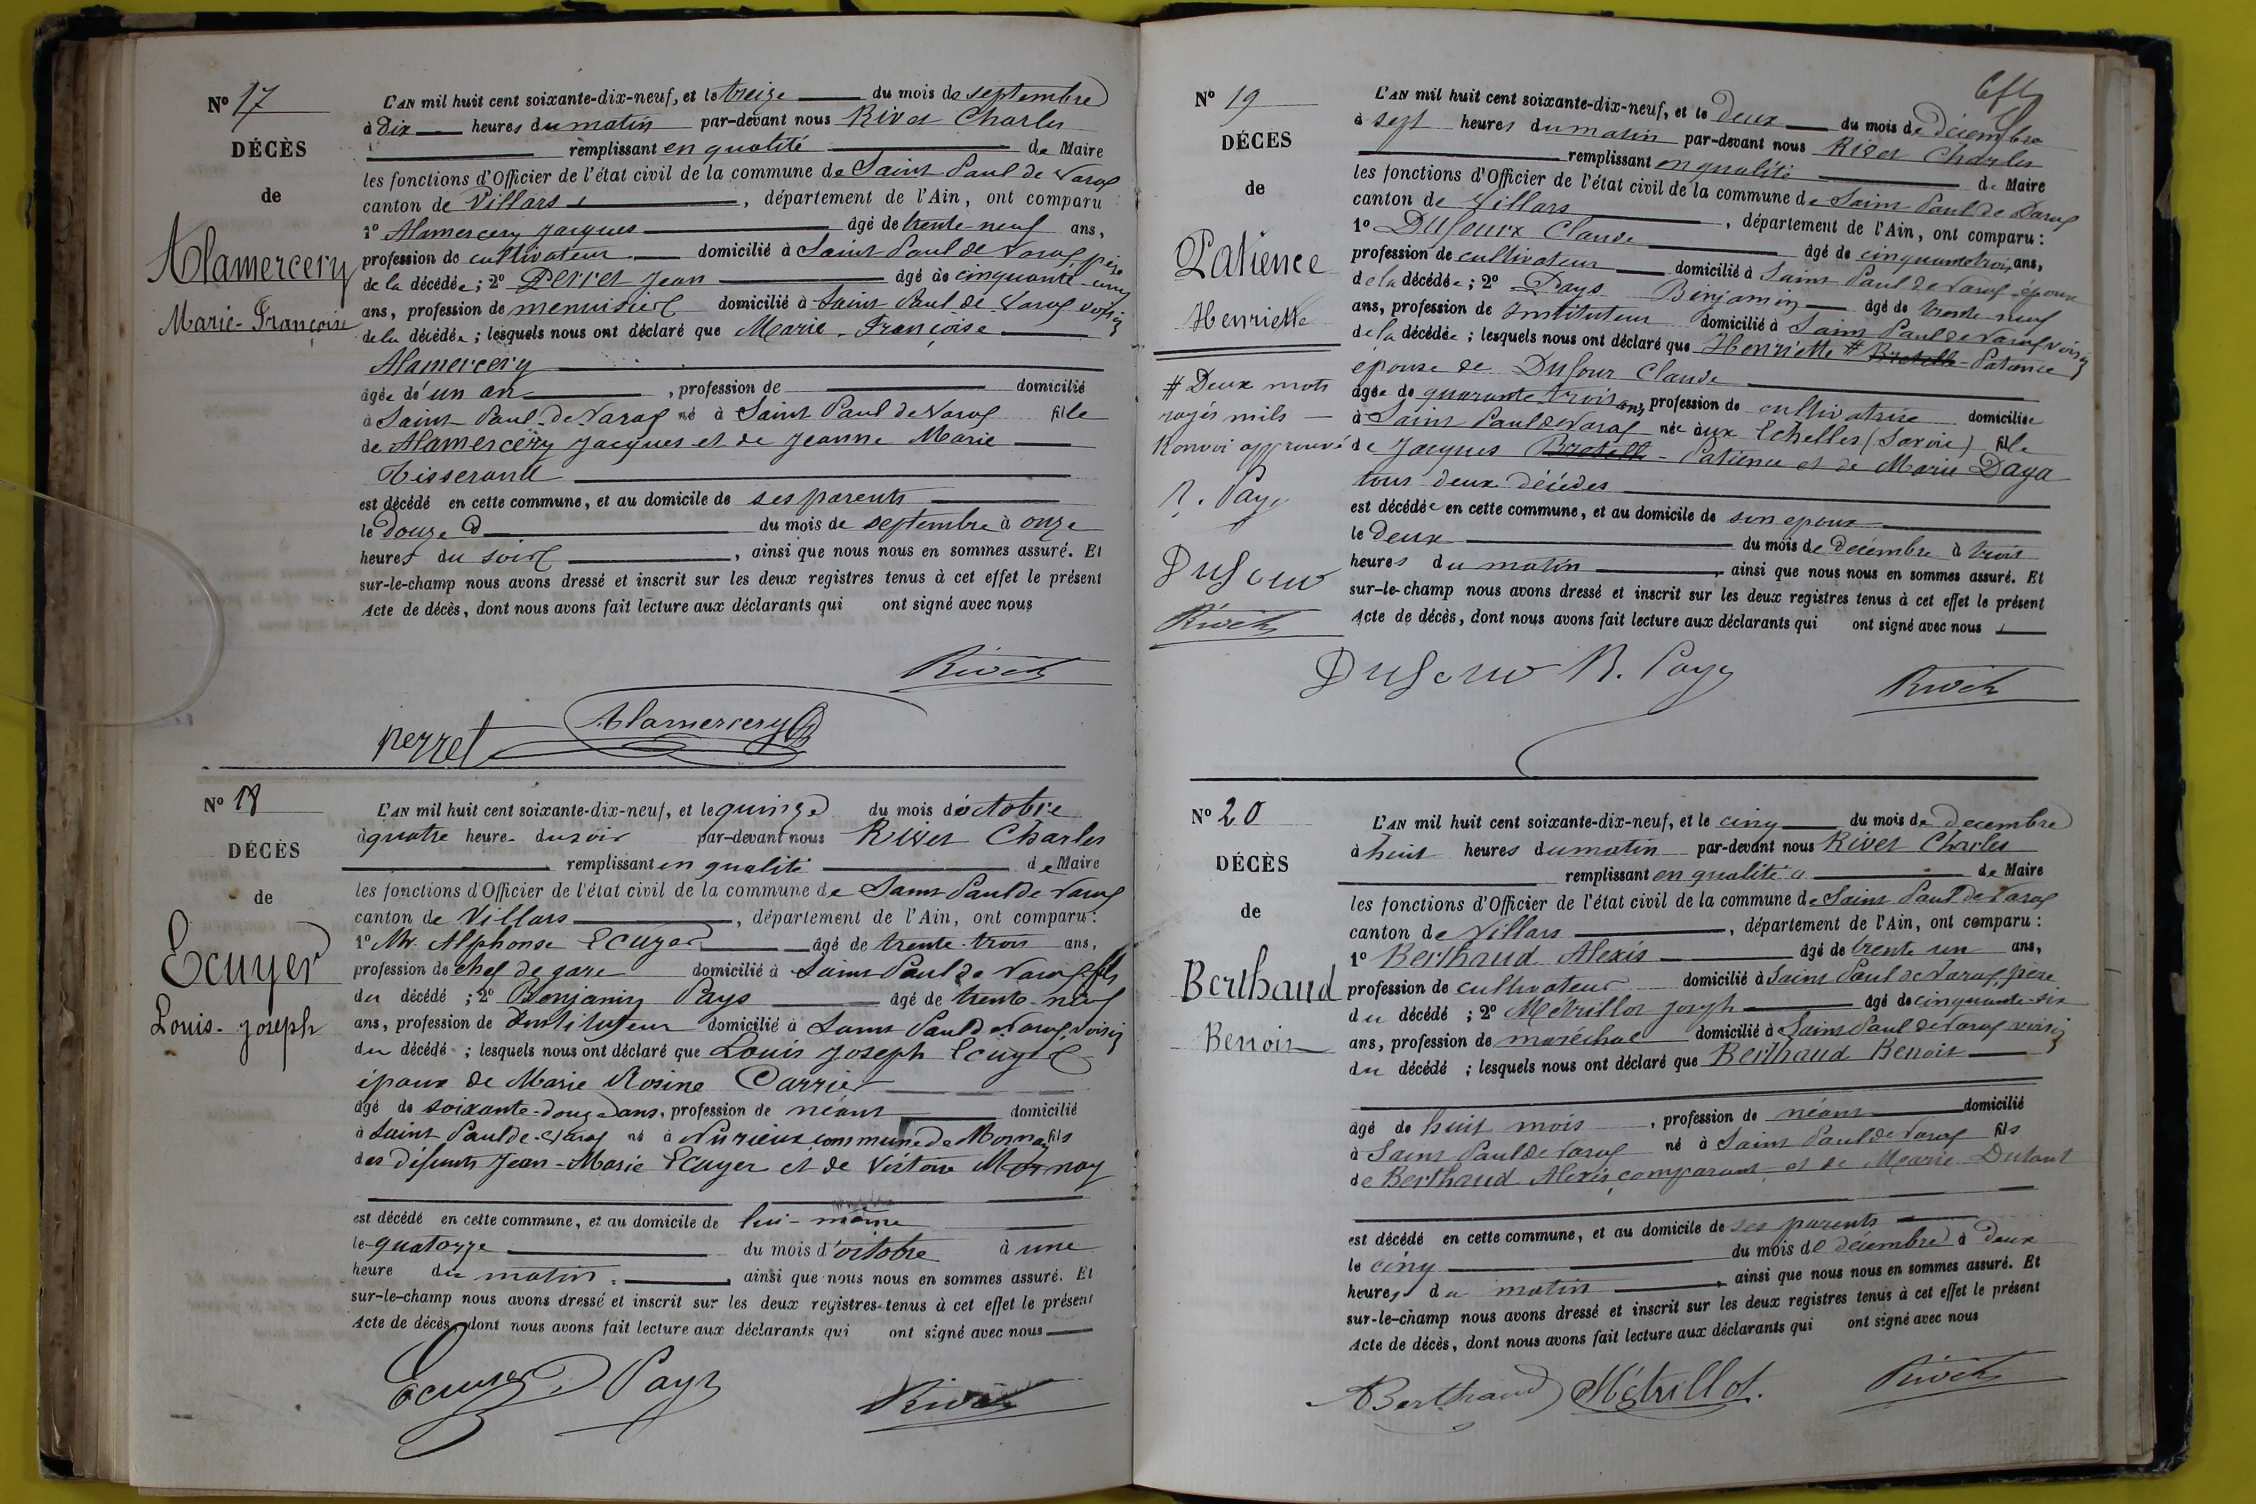 N° 17
DÉCÈS
de
Alamercery
Marie-Françoise
L'AN mil huit cent soixante-dix-neuf, et le treize du mois de septembre
à Dix heures du matin par-devant nous Rivet Charles
remplissant en qualité de Maire
les fonctions d'Officier de l'état civil de la commune de Saint Paul de Varax
canton de Villars, département de l'Ain, ont comparu
1° Alamercery Jacques âgé de trente-neuf ans,
profession de cultivateur domicilié à Saint Paul de Varax père
de la décédée; 2° Perret Jean âgé de cinquante-cinq
ans, profession de menuisier domicilié à Saint Paul de Varax voisin
de la décédée; lesquels nous ont déclaré que Marie-Françoise
Alamercery
âgée d'un an, profession de domicilié
à Saint Paul de Varax né à Saint Paul de Varax fille
de Alamercery Jacques et de Jeanne Marie
Tisserand
est décédé en cette commune, et au domicile de ses parents
le Douze du mois de septembre à onze
heures du soir, ainsi que nous nous en sommes assuré. Et
sur-le-champ nous avons dressé et inscrit sur les deux registres tenus à cet effet le présent
Acte de décès, dont nous avons fait lecture aux déclarants qui ont signé avec nous
Rivet
perret Alamercery
N° 18
DÉCÈS
de
Ecuyer
Louis-Joseph
L'AN mil huit cent soixante-dix-neuf, et le quinze du mois d'octobre
à quatre heure du soir par-devant nous Rivet Charles
remplissant en qualité de Maire
les fonctions d'Officier de l'état civil de la commune de Saint Paul de Varax
canton de Villars, département de l'Ain, ont comparu:
1° Mr Alphonse Ecuyer âgé de trente-trois ans,
profession de chef de gare domicilié à Saint Paul de Varax fils
du décédé; 2° Benjamin Pays âgé de trente-neuf
ans, profession de Instituteur domicilié à Saint Paul de Varax voisin
du décédé; lesquels nous ont déclaré que Louis Joseph Ecuyer
époux de Marie Rosine Carrier
âgé de soixante-douze ans, profession de néant domicilié
à Saint Paul de Varax né à Nurieux commune de Mornay fils
des défunts Jean-Marie Ecuyer et de Victoire Mornay
est décédé en cette commune, et au domicile de lui-même
le quatorze du mois d'octobre à une
heure du matin, ainsi que nous nous en sommes assuré. Et
sur-le-champ nous avons dressé et inscrit sur les deux registres tenus à cet effet le présent
Acte de décès, dont nous avons fait lecture aux déclarants qui ont signé avec nous
Ecuyer Pays
Rivet
N° 19
DÉCÈS
de
Patience
Henriette
# Deux mots
rayés nuls
Renvoi approuvé
Pays
Dufour
Rivet
L'AN mil huit cent soixante-dix-neuf, et le Deux du mois de Décembre
à sept heures du matin par-devant nous Rivet Charles
remplissant en qualité de Maire
les fonctions d'Officier de l'état civil de la commune de Saint Paul de Varax
canton de Villars, département de l'Ain, ont comparu:
1° Dufour Claude âgé de cinquante trois ans,
profession de cultivateur domicilié à Saint Paul de Varax époux
de la décédée; 2° Pays Benjamin âgé de trente-neuf
ans, profession de Instituteur domicilié à Saint Paul de Varax voisin
de la décédée; lesquels nous ont déclaré que Henriette # Patience
épouse de Dufour Claude
âgée de quarante trois ans, profession de cultivatrice domiciliée
à Saint Paul de Varax née aux Echelles (Savoie) fille
de Jacques Patience et de Marie Daga
tous deux décédés
est décédée en cette commune, et au domicile de son époux
le Deux du mois de Décembre à trois
heures du matin, ainsi que nous nous en sommes assuré. Et
sur-le-champ nous avons dressé et inscrit sur les deux registres tenus à cet effet le présent
Acte de décès, dont nous avons fait lecture aux déclarants qui ont signé avec nous
Dufour Pays
Rivet
N° 20
DÉCÈS
de
Berthaud
Benoit
L'AN mil huit cent soixante-dix-neuf, et le cinq du mois de Decembre
à huit heures du matin par-devant nous Rivet Charles
remplissant en qualité de Maire
les fonctions d'Officier de l'état civil de la commune de Saint Paul de Varax
canton de Villars, département de l'Ain, ont comparu:
1° Berthaud Alexis âgé de trente un ans,
profession de cultivateur domicilié à Saint Paul de Varax, père
du décédé; 2° Métrillot Joseph âgé de cinquante-six
ans, profession de maréchal domicilié à Saint Paul de Varax voisin
du décédé; lesquels nous ont déclaré que Berthaud Benoit
âgé de huit mois, profession de néant domicilié
à Saint Paul de Varax né à Saint Paul de Varax fils
de Berthaud Alexis comparant et de Marie Dutant
est décédé en cette commune, et au domicile de ses parents
le cinq du mois de décembre à Deux
heures du matin, ainsi que nous nous en sommes assuré. Et
sur-le-champ nous avons dressé et inscrit sur les deux registres tenus à cet effet le présent
Acte de décès, dont nous avons fait lecture aux déclarants qui ont signé avec nous
Berthaud Métrillot
Rivet